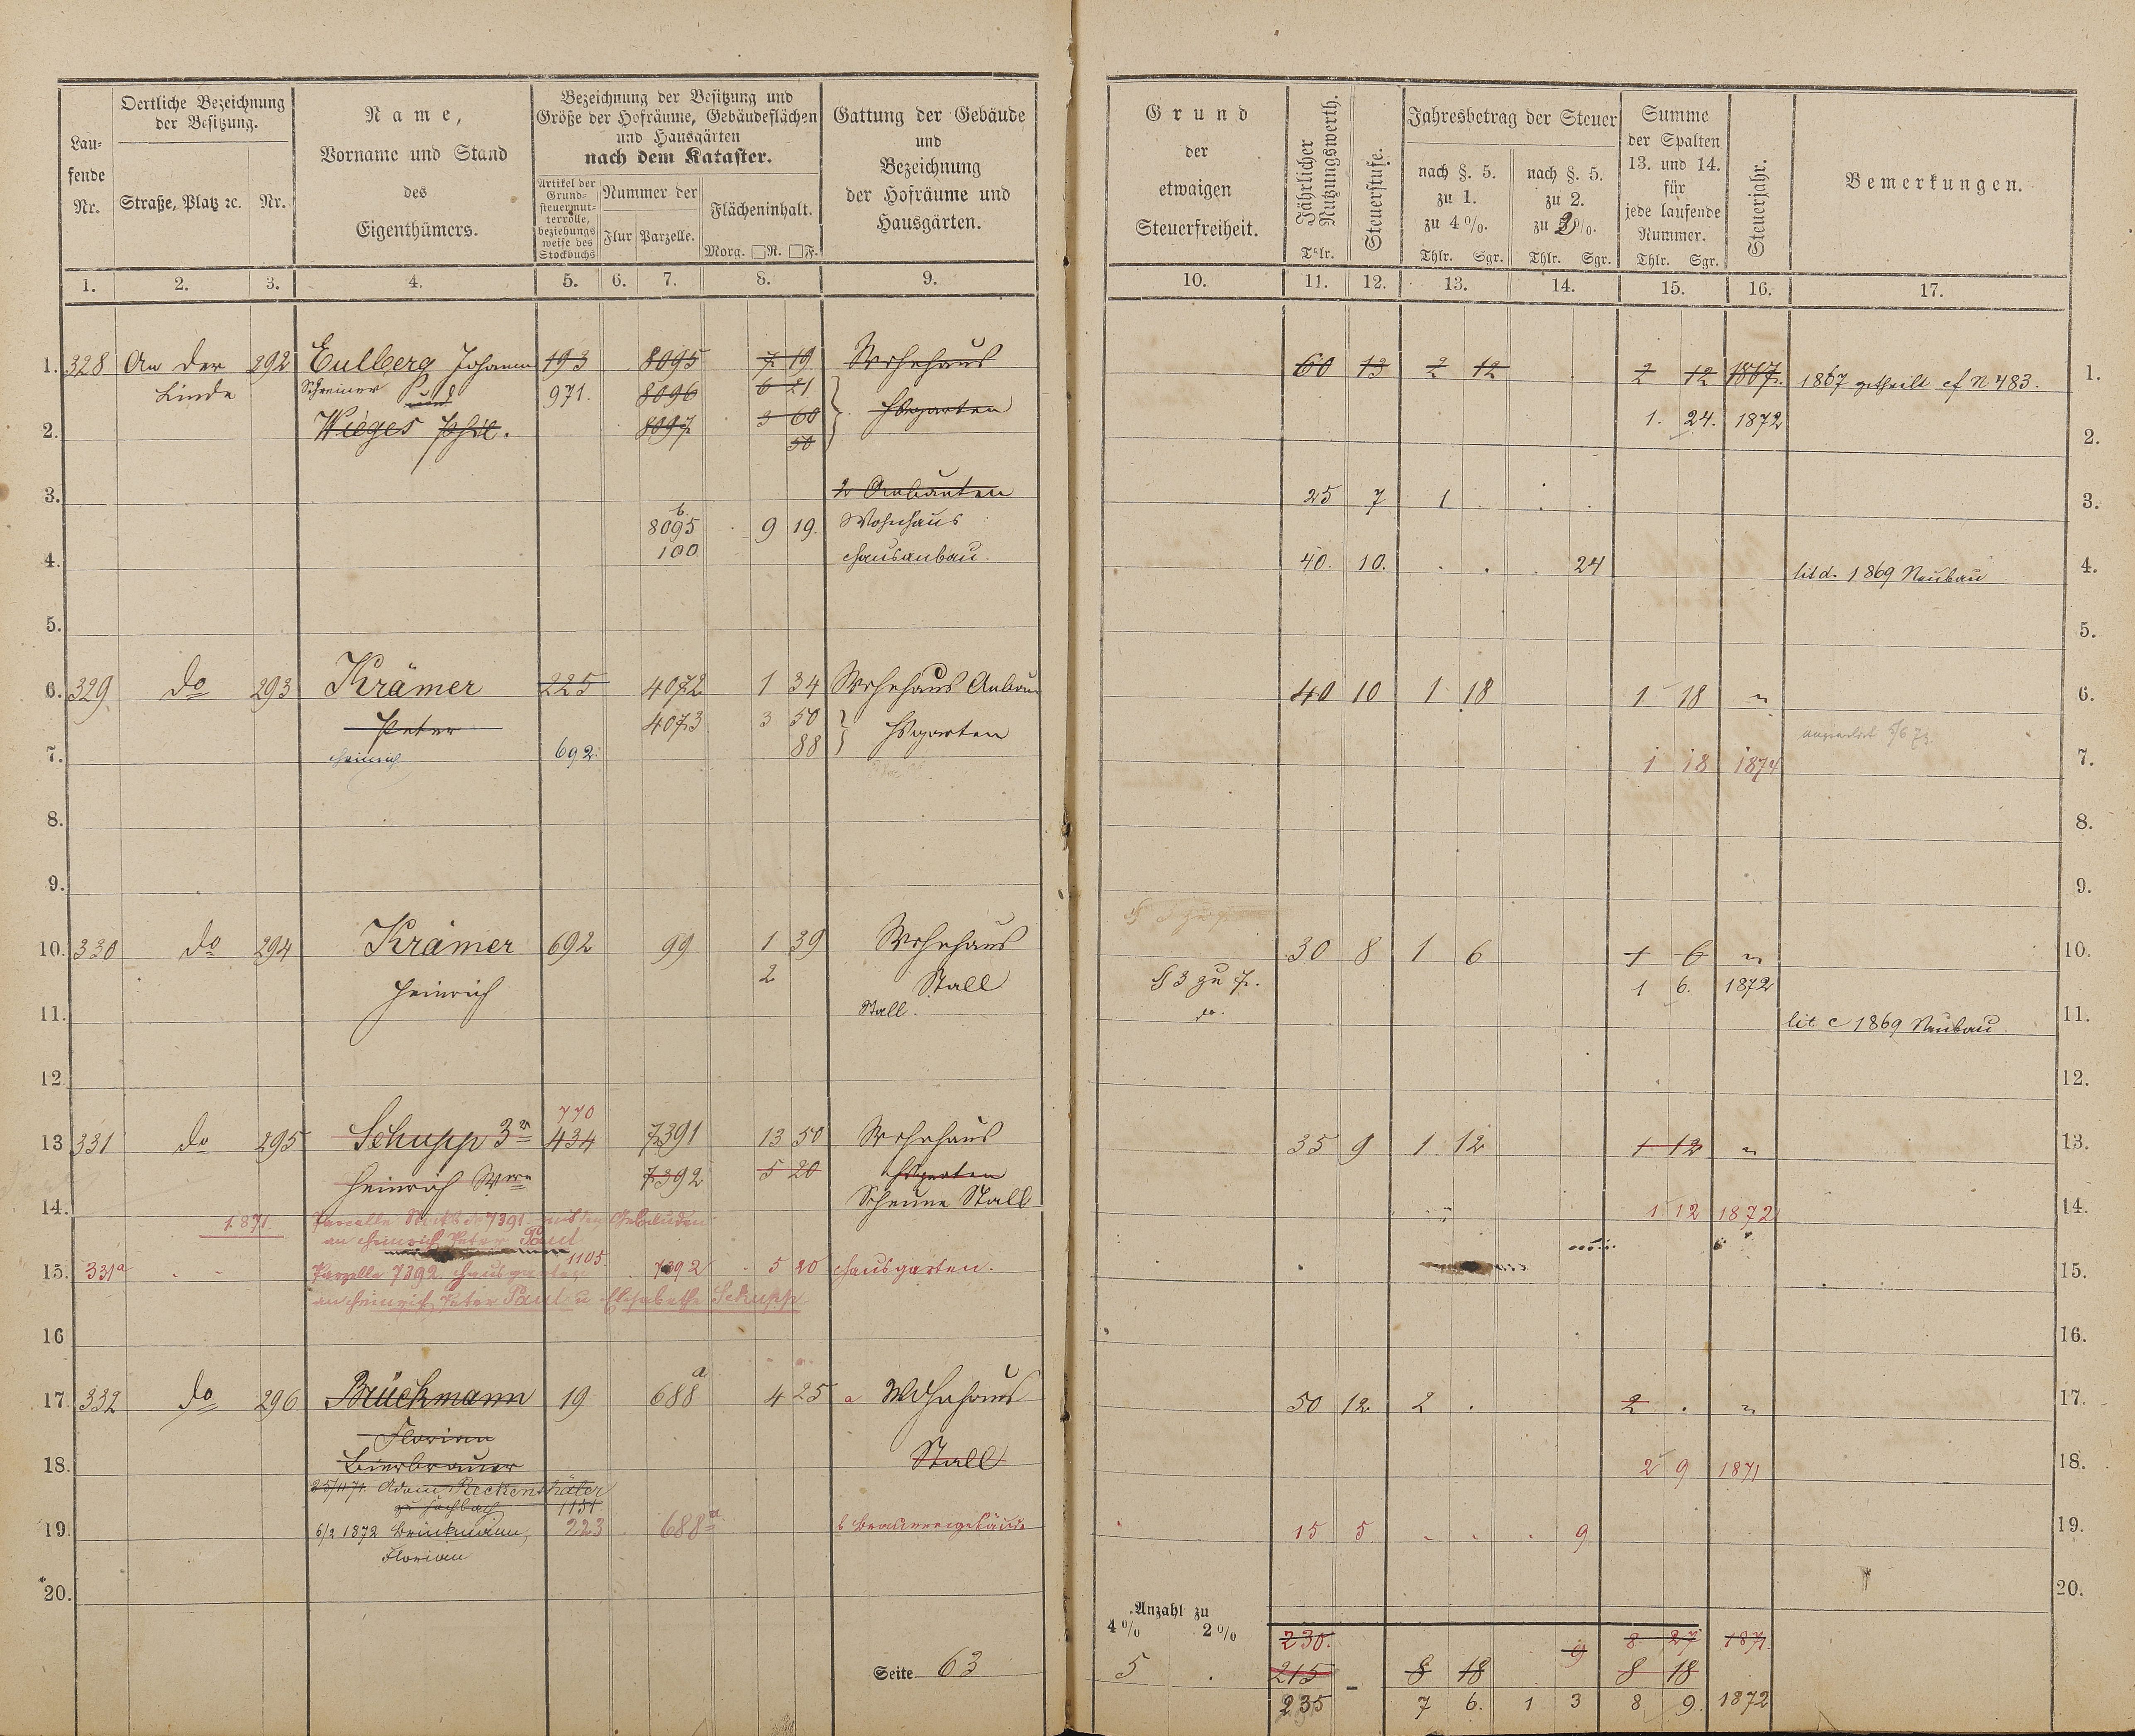 Lau-
fende
Nr.
Oertliche Bezeichnung
der Besitzung.
Straße, Platz ꝛc. Nr.
Name,
Vorname und Stand
des
Eigenthümers.
Bezeichnung der Besitzung und
Größe der Hofräume, Gebäudeflächen
und Hausgärten
nach dem Kataster.
Artikel der
Grund-
steuermut-
terrolle,
beziehungs
weise des
Stockbuchs
Nummer der
Flur Parzelle.
Flächeninhalt.
Morg. □R. □F.
Gattung der Gebäude
und
Bezeichnung
der Hofräume und
Hausgärten.
1. 2. 3. 4. 5. 6. 7. 8. 9.
1. 328 An der 292 Eulberg Johann 193 8095 7 19 Wohnhaus
Linde Schreiner 971. 8096 6 21
und
2. Wieges Phil. 8097 3 60 Hsgarten
50
3. 2 Anbauten
b
8095 9 19. Wohnhaus
4. 100 Hausanbau.
5.
6. 329 do 293 Krämer 225 4072 1 34 Wohnhaus Anbau
Peter 4073 3 50 Hsgarten
7. Heinrich 692. 88
8.
9.
10. 330 do 294 Krämer 692 99 1 39 Wohnhaus
Heinrich 2 Stall
11. Stall.
12.
770
13 331 do 295 Schupp 3r 434 7391 13 50 Wohnhaus
Heinrich Wwe 7392 5 20 Hsgarten
14. Scheune Stall
1871. Parcelle 7391 mit den Gebäuden
an Heinrich Peter Paul
1105.
15. 331a Parzelle 7392 Hausgarten 7392 5 20 Hausgarten.
an Heinrich Peter Paul u Elisabethe Schupp
16
17. 332 do 296 Brückmann 19 688a 4 25 a Wohnhaus
Florian
18. Bierbrauer Stall
Adam Reckenthäler
1151.
19. 6/2 1872 Brückmann, 223 688a b Brauereigebäude
Florian
20.
Seite 63
Grund
der
etwaigen
Steuerfreiheit.
Jährlicher
Nutzungswerth.
Thlr.
Steuerstufe.
Jahresbetrag der Steuer
nach §. 5.
zu 1.
zu 4 %.
Thlr. Sgr.
nach §. 5.
zu 2.
zu 2%.
Thlr. Sgr.
Summe
der Spalten
13. und 14.
für
jede laufende
Nummer.
Thlr. Sgr.
Steuerjahr.
Bemerkungen.
10. 11. 12. 13. 14. 15. 16. 17.
60 13 2 12 2 12 1867. 1867 getheilt cf N 483. 1.
1. 24. 1872
2.
25 7 1 . 3.
40. 10. . . . 24 lit d. 1869 Neubau 4.
5.
40 10 1 18 1 18 " 6.
1 18 1874 7.
8.
9.
30 8 1 6 1 6 " 10.
§ 3 zu 7. 1 6. 1872
do. lit c 1869 Neubau. 11.
12.
35 9 1 12 1 12 " 13.
1 12 1872 14.
15.
16.
50 12 2 . 2 . " 17.
2 9 1871 18.
15 5 . . . 9 19.
20.
Anzahl zu
4 % 2 %
230. 9 8 27 1871.
5 . 215 8 18 8 18
235 7 6. 1 3 8 9. 1872